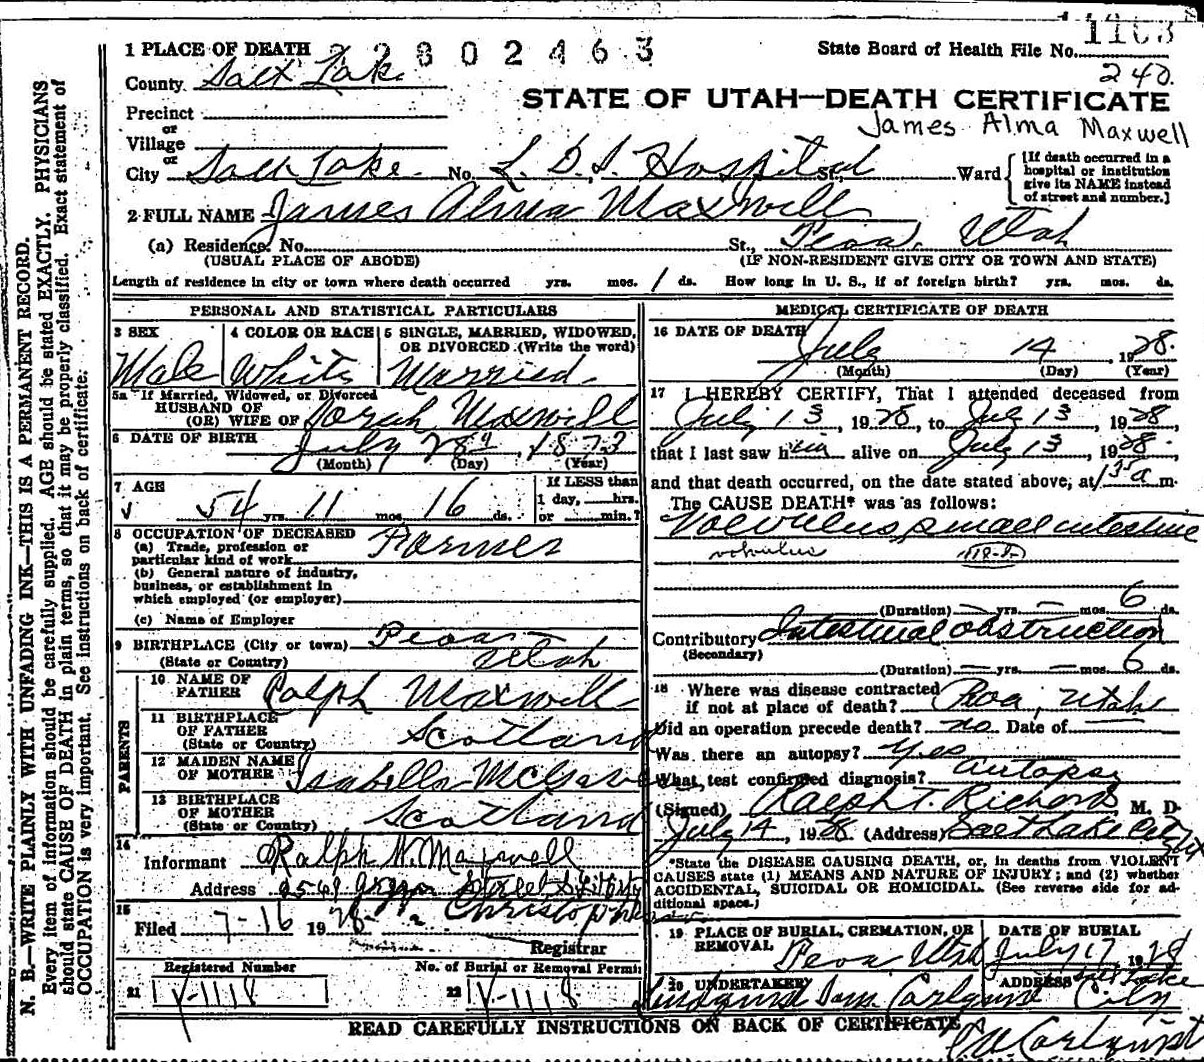 1 PLACE OF DEATH 22802463 State Board of Health File No. 1103
County Salt Lake 240
STATE OF UTAH—DEATH CERTIFICATE
Precinct
or
Village James Alma Maxwell
or
City Salt Lake No. L. D. S. Hospital St., Ward [If death occurred in a hospital or institution give its NAME instead of street and number.]
2 FULL NAME James Alma Maxwell
(a) Residence. No. St., Peoa, Utah
(USUAL PLACE OF ABODE) (IF NON-RESIDENT GIVE CITY OR TOWN AND STATE)
Length of residence in city or town where death occurred yrs. mos. 1 ds. How long in U. S., if of foreign birth? yrs. mos. ds.
PERSONAL AND STATISTICAL PARTICULARS
3 SEX 4 COLOR OR RACE 5 SINGLE, MARRIED, WIDOWED, OR DIVORCED (Write the word)
Male White Married
5a If Married, Widowed, or Divorced
HUSBAND OF
(OR) WIFE OF Norah Maxwell
6 DATE OF BIRTH July 28th, 1873
(Month) (Day) (Year)
7 AGE If LESS than
54 yrs. 11 mos. 16 ds. 1 day, hrs.
or min.?
8 OCCUPATION OF DECEASED
(a) Trade, profession or
particular kind of work Farmer
(b) General nature of industry,
business, or establishment in
which employed (or employer)
(c) Name of Employer
9 BIRTHPLACE (City or town) Peoa
(State or Country) Utah
PARENTS
10 NAME OF
FATHER Ralph Maxwell
11 BIRTHPLACE
OF FATHER
(State or Country) Scotland
12 MAIDEN NAME
OF MOTHER Isabella
13 BIRTHPLACE
OF MOTHER
(State or Country) Scotland
14
Informant Ralph W. Maxwell
Address Street
15
Filed 7-16 1928
Registrar
Registered Number No. of Burial or Removal Permit
21 V-1118 22 V-1118
MEDICAL CERTIFICATE OF DEATH
16 DATE OF DEATH
July 14, 1928.
(Month) (Day) (Year)
17 I HEREBY CERTIFY, That I attended deceased from
July 13, 1928, to July 13, 1928,
that I last saw him alive on July 13, 1928,
and that death occurred, on the date stated above, at 1 35 a m.
The CAUSE DEATH* was as follows:
Volvulus, small intestine
volvulus 118-B
(Duration) — yrs. — mos. 6 ds.
Contributory Intestinal obstruction
(Secondary)
(Duration) — yrs. — mos. 6 ds.
18 Where was disease contracted
if not at place of death? Peoa, Utah
Did an operation precede death? no Date of —
Was there an autopsy? Yes
What test confirmed diagnosis? autopsy
(Signed) Ralph T. Richards M. D.
July 14, 1928 (Address) Salt Lake City
*State the DISEASE CAUSING DEATH, or, in deaths from VIOLENT
CAUSES state (1) MEANS AND NATURE OF INJURY; and (2) whether
ACCIDENTAL, SUICIDAL OR HOMICIDAL. (See reverse side for ad-
ditional space.)
19 PLACE OF BURIAL, CREMATION, OR DATE OF BURIAL
REMOVAL Peoa, Utah July 17, 1928
20 UNDERTAKER ADDRESS Salt Lake
Carlquist City
READ CAREFULLY INSTRUCTIONS ON BACK OF CERTIFICATE
Carlquist
N. B.—WRITE PLAINLY WITH UNFADING INK—THIS IS A PERMANENT RECORD.
Every item of information should be carefully supplied. AGE should be stated EXACTLY. PHYSICIANS
should state CAUSE OF DEATH in plain terms, so that it may be properly classified. Exact statement of
OCCUPATION is very important. See instructions on back of certificate.